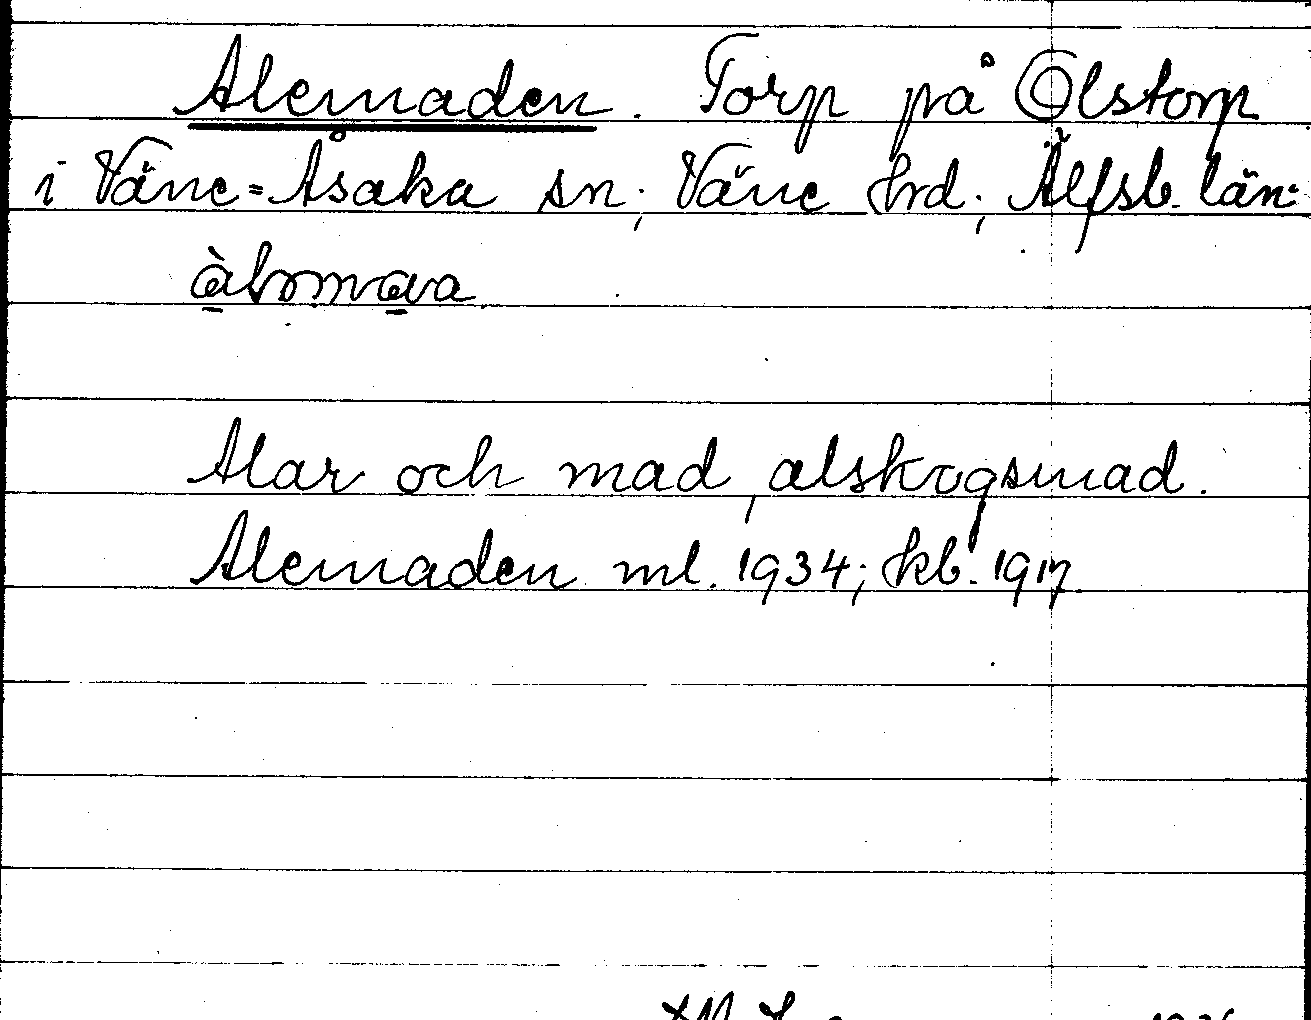 Alemaden. Torp på Olstorp
i Väne=Åsaka sn; Väne hrd; Älfsb. län.
Alar och mad, alskogsmad.
Alemaden ml. 1934; kb. 1917